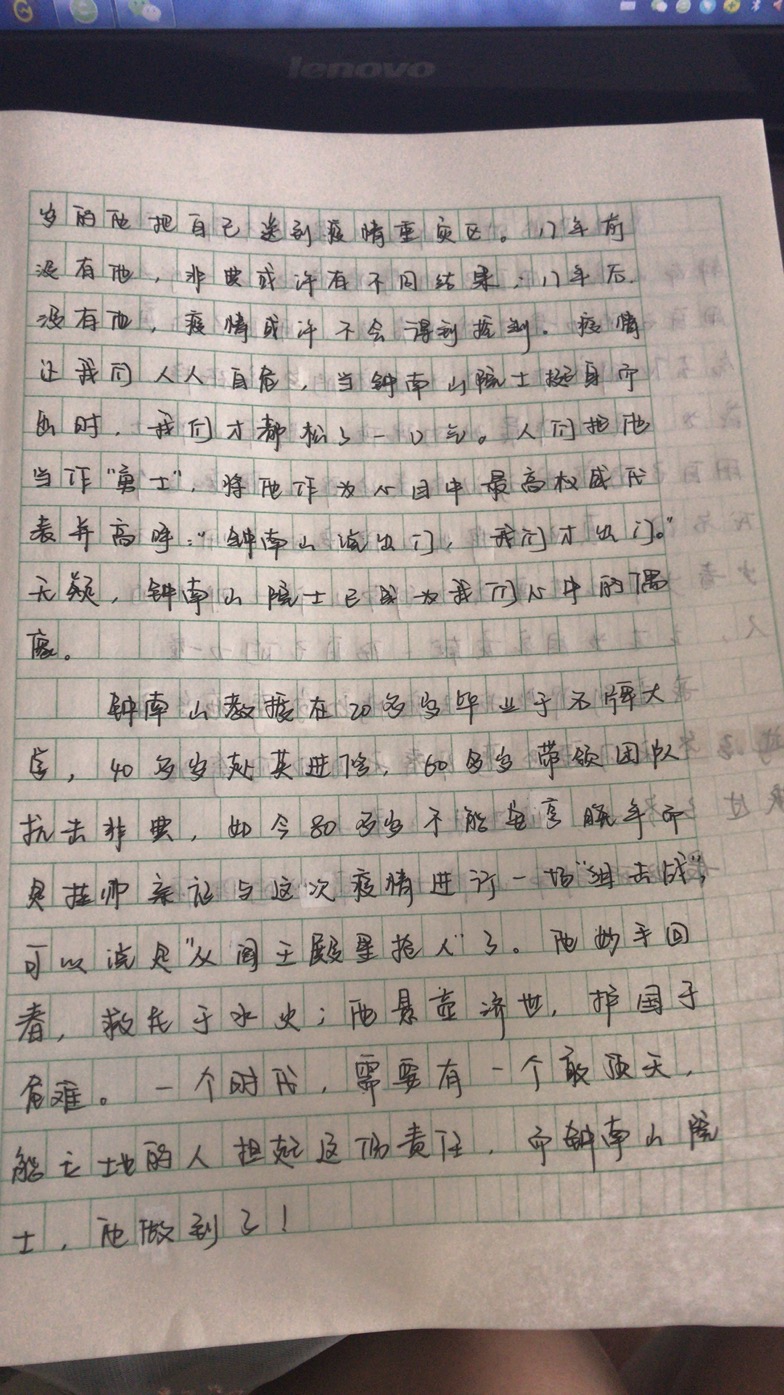 lenovo
岁的他把自己送到疫情重灾区。17年前
没有他，非典或许有不同结果；17年后
没有他，疫情或许不会得到控制。疫情
让我们人人自危，当钟南山院士挺身而
出时，我们才都松了一口气。人们把他
当作"勇士"，将他作为心目中最高权威代
表并高呼："钟南山说出门，我们才出门。"
无疑，钟南山院士已成为我们心中的偶
像。
钟南山教授在20多岁毕业于名牌大
学，40多岁赴英进修，60多岁带领团队
抗击非典，如今80多岁不能安享晚年而
是挂帅亲征与这次疫情进行一场"阻击战"，
可以说是"从阎王殿里抢人"了。他妙手回
春，救民于水火；他悬壶济世，护国于
危难。一个时代，需要有一个敢顶天，
能立地的人担起这份责任，而钟南山院
士，他做到了！